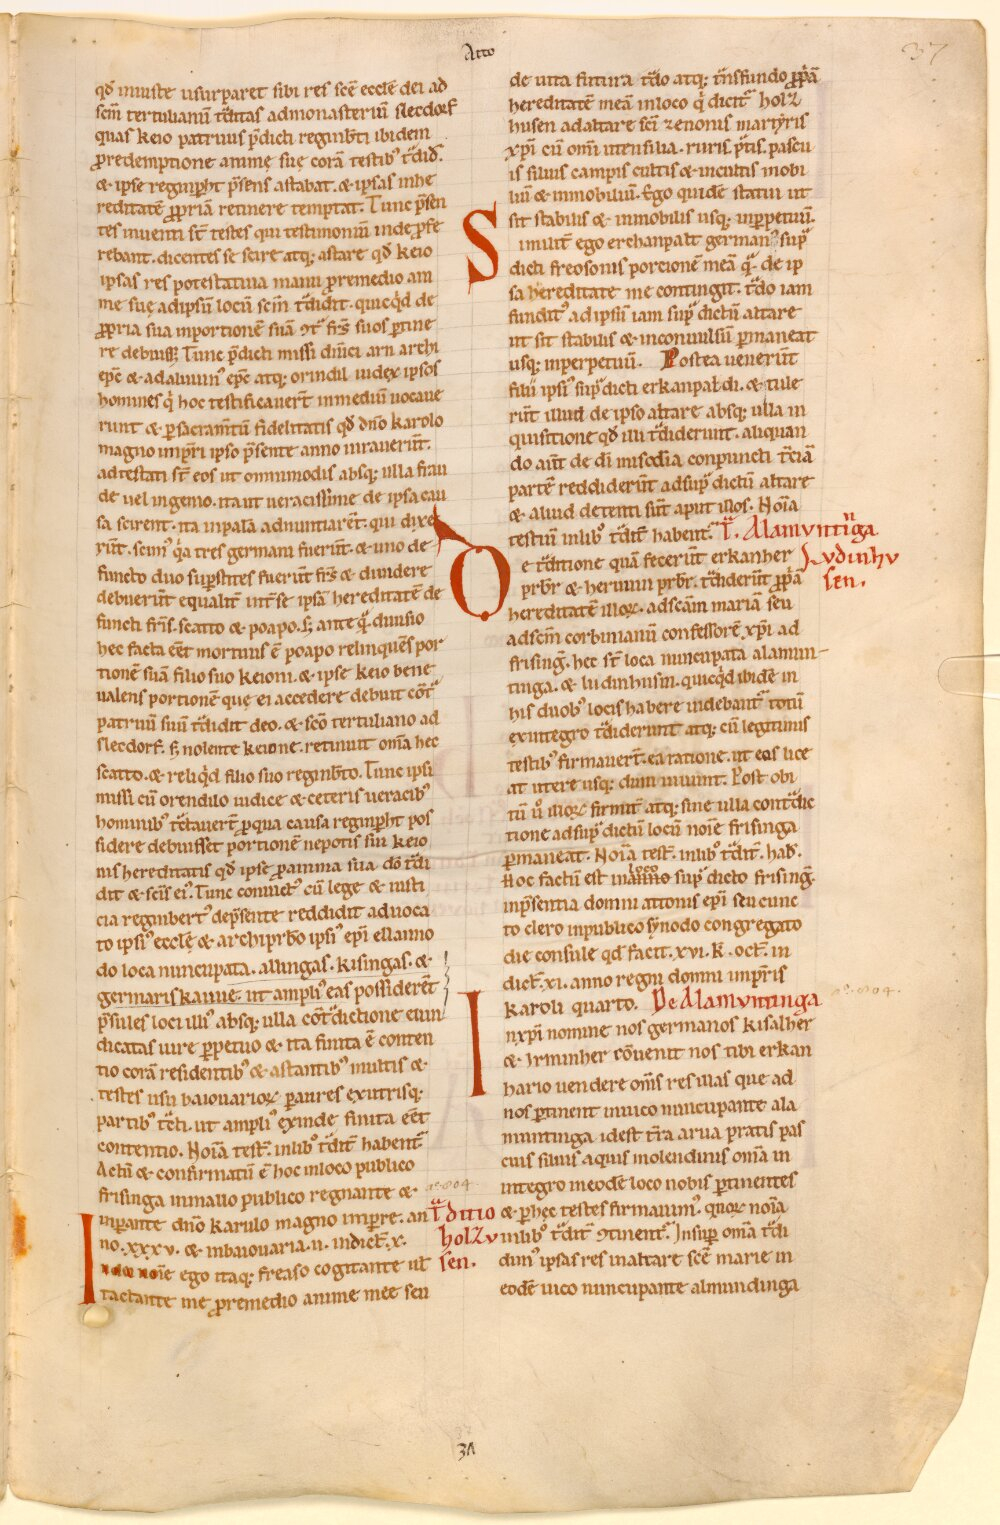 Atto
37
qd̄ iniuste usurparet sibi res scē ecclē dei ad
scm̄ tertulianū tͣditas ad monasteriū slecdorf
quas keio patruus p̄dicti reginb̄ti ibidem
ꝓ redemptione anime sue corā testib᾽ tͣdid᾽.
& ipse reginpht p̄sens astabat. & ipsas in he
reditatē ꝓpriā retinere temptat. Tunc p̄sen
tes inuenti st̄ testes qui testimoniū inde ꝓfe
rebant. dicentes se scire atq; astare qd̄ keio
ipsas res potestatiua manu ꝓ remedio ani
me sue ad ipsū locū scm̄ tͣdidit. quicqͥd de
ꝓpria sua in portionē suā ꝯtͣ frs̄ suos ꝑtine
re debuiss;. Tunc p̄dicti missi dn̄ici arn archi
epc̄ & adaluuin᾽ epc̄ atq; orindil iudex ipsos
homines qͥ hoc testificauert̄ in mediū uocaue
runt & ꝑ sacram̄tū fidelitatis qd̄ dn̄o karolo
magno imp̄ri ipso p̄sente anno iurauert̄.
adtestati st̄ eos ut omnimodis absq; ulla frau
de uel ingenio. ita ut ueracissime de ipsa cau
sa scirent. ita in palā adnuntiarēt. qui dixe
rūt. scim᾽ qͥa tres germani fuerūt. & uno de
functo duo suꝑstites fuerūt frs̄ & diuidere
debuerūt equalit̄ int̄ se ipsā hereditatē de
functi fris̄. scatto & poapo. s; ante qͣ diuisio
hec facta eēt mortuus ē poapo relinquēs por
tionē suā filio suo keioni. & ipse keio bene
ualens portionē que ei accedere debuit cōtͣ
patruū suū tͣdidit deo. & scō tertuliano ad
slecdorf. s; nolente keione. retinuit om̄a hec
scatto. & reliqͥd filio suo reginb̄to. Tunc ipsi
missi cū orendilo iudice & ceteris ueracib᾽
hominib᾽ tͣctauert̄ ꝑ qua causa reginpht pos
sidere debuisset portionē nepotis sui keio
nis hereditatis qd̄ ipse ꝓ anima sua dō tͣdi
dit & scīs ei᾽. Tunc conuict᾽ cū lege & iusti
cia reginbert᾽ de p̄sente reddidit aduoca
to ipsi᾽ ecclē & archip̄rb̄o ipsi᾽ ep̄i ellanno
do loca nuncupata. allingas. kisingas. &
germariskauue. ut ampli᾽ eas possiderēt
p̄sules loci illi᾽ absq; ulla cōtͣdictione et uin
dicatas iure ꝑpetuo & ita finita ē conten
tio corā residentib᾽ & astantib᾽ multis &
testes usu baiouarioꝝ ꝑ aures ex utrisq;
partib᾽ tͣcti. ut ampli᾽ exinde finita eēt
contentio. Noīa test̄. in lib᾽ tͣdit̄ habent᾽
Actū & confirmatū ē hoc in loco publico
frisinga in mallo publico regnante &
inperante dn̄o karulo magno impr̄e. an
no .xxxv. & in baiouaria .ii. indict̄ .x.
tͣditio
holzv
sen.
ego itaq; freaso cogitante ut̄
tactante me ꝓ remedio anime mee seu
de uita futura tͣdo atq; tͣnsfundo ꝓpͥā
hereditatē meā in loco qͥ dicit᾽ holz
husen ad altare sc̄i zenonis martyris
xp̄i cū om̄i utensilia. ruris. p̄tis. pascu
is siluis campis cultis & incultis mobi
liū & inmobiliū. Ego quidē statui ut
sit stabilis & inmobilis usq; in ꝑpetuū.
Simulit̄ ego erchanpalt german᾽ supͣ
dicti freosonis porcionē meā qͥ de ip
sa hereditate me contingit. tͣdo iam
fundit᾽ ad ipsū iam supͣdictū altare
ut sit stabilis & inconuulsū ꝑmaneat
usq; in perpetuū. Postea uenerūt
filii ipsi᾽ supͣdicti erkanpaldi. & tule
rūt illud de ipso altare absq; ulla in
quisitione qd̄ illi tͣdiderunt. aliquan
do aut̄ de dī misc̄dia conpuncti tͣciā
partē reddiderūt ad supͣdictū altare
& aliud detenti sūt aput illos. Noīa
testiū in lib᾽ tͣdit̄ habent᾽. T᾽. Alamvntiga
Lvdinhv
sen.
De tͣditione quā fecerūt erkanher
prb̄r & herimi prb̄r. tͣdiderūt ꝓpͥā
hereditatē illoꝝ. ad scām mariā seu
ad scm̄ corbinianū confessorē xp̄i ad
frisinḡ. hec st̄ loca nuncupata alamun
tinga. & ludinhusir. quicqͥd ibidē in
his duob᾽ locis habere uidebant᾽ totū
ex integro tͣdiderunt atq; cū legitimis
testib᾽ firmauert̄. ea ratione. ut eos lice
at utere usq; dum uiuunt. Post obi
tū u᾽ illoꝝ firmit̄ atq; sine ulla contͣdic
tione ad supͣdictū locū noīe frisinga
ꝑmaneat. Noīa test̄. in lib᾽ tͣdit̄. hab̄.
Hoc factū est in anno supͣ dicto frisinḡ.
in p̄sentia domni attonis ep̄i seu cunc
to clero in publico synodo congregato
die consule qd̄ facit .xvi. k̄. oct̄. in
dict̄. xi. anno regni domni imp̄ris
karoli quarto. De Alamvntinga
In xp̄i nomine nos germanos kisalher
& irminher cōuenit nos tibi erkan
hario uendere om̄s res illas que ad
nos ꝑtinent in uico nuncupante ala
muntinga id est tr̄a arua pratis pas
cuis siluis aquis molendinis om̄ia in
integro in eodē loco nobis ꝑtinentes
& ꝑ hec testes firmauim᾽. quoꝝ noīa
in lib᾽ tͣdit̄ ꝯtinent᾽. Insuꝑ om̄a tͣdi
dim᾽ ipsas res in altare scē marie in
eodē uico nuncupante almundinga